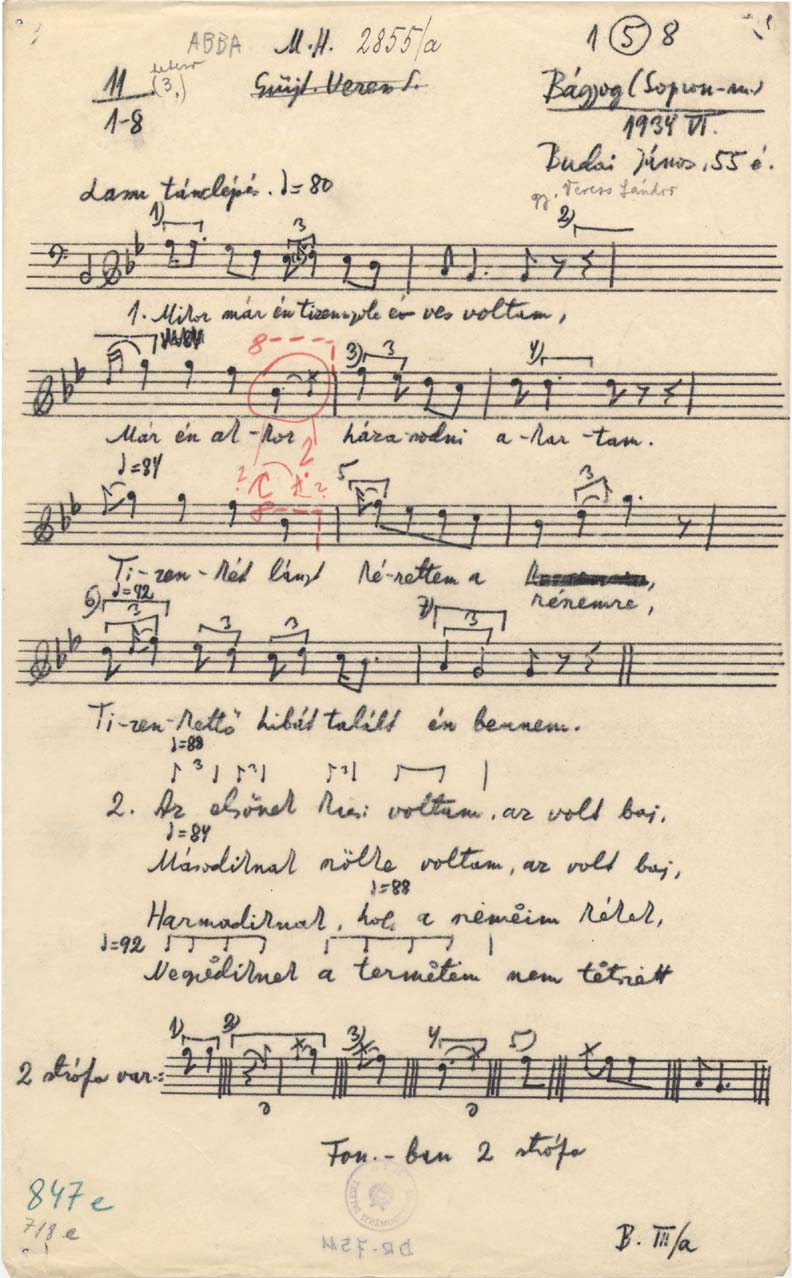 ABBA M.H. 2855/a 1 5 8
11 (3.)
1-8
Gyűjt. Veress S.
Bágyog (Sopron-m.)
1934 VI.
Budai János, 55 é.
gy. Veress Sándor
Lassu tánclépés. ♩=80
1) 3 2)
1. Mikor már én tizennyolc éves voltam,
8 3) 3 4)
Már én ak-kor háza-sodni a-kar-tam.
♩=84 2
? ? 5 3
8
Ti-zen-két lányt ké-rettem a
♩=92 kénemre,
6) 3 3 3 7) 3
Ti-zen-kettő hibát talált én bennem.
♩=88
3 3 3
2. Az elsőnek kicsi voltam, az volt baj,
♩=84
Másodiknak szőke voltam, az volt baj,
♩=88
Harmadiknak, hogy a szemeim kékek,
♩=92
Negyediknek a termetem nem tetszett
1) 2) 3) 4)
2 strófa var.:
Fon.-ban 2 strófa
847 e
718 e
B. III/a